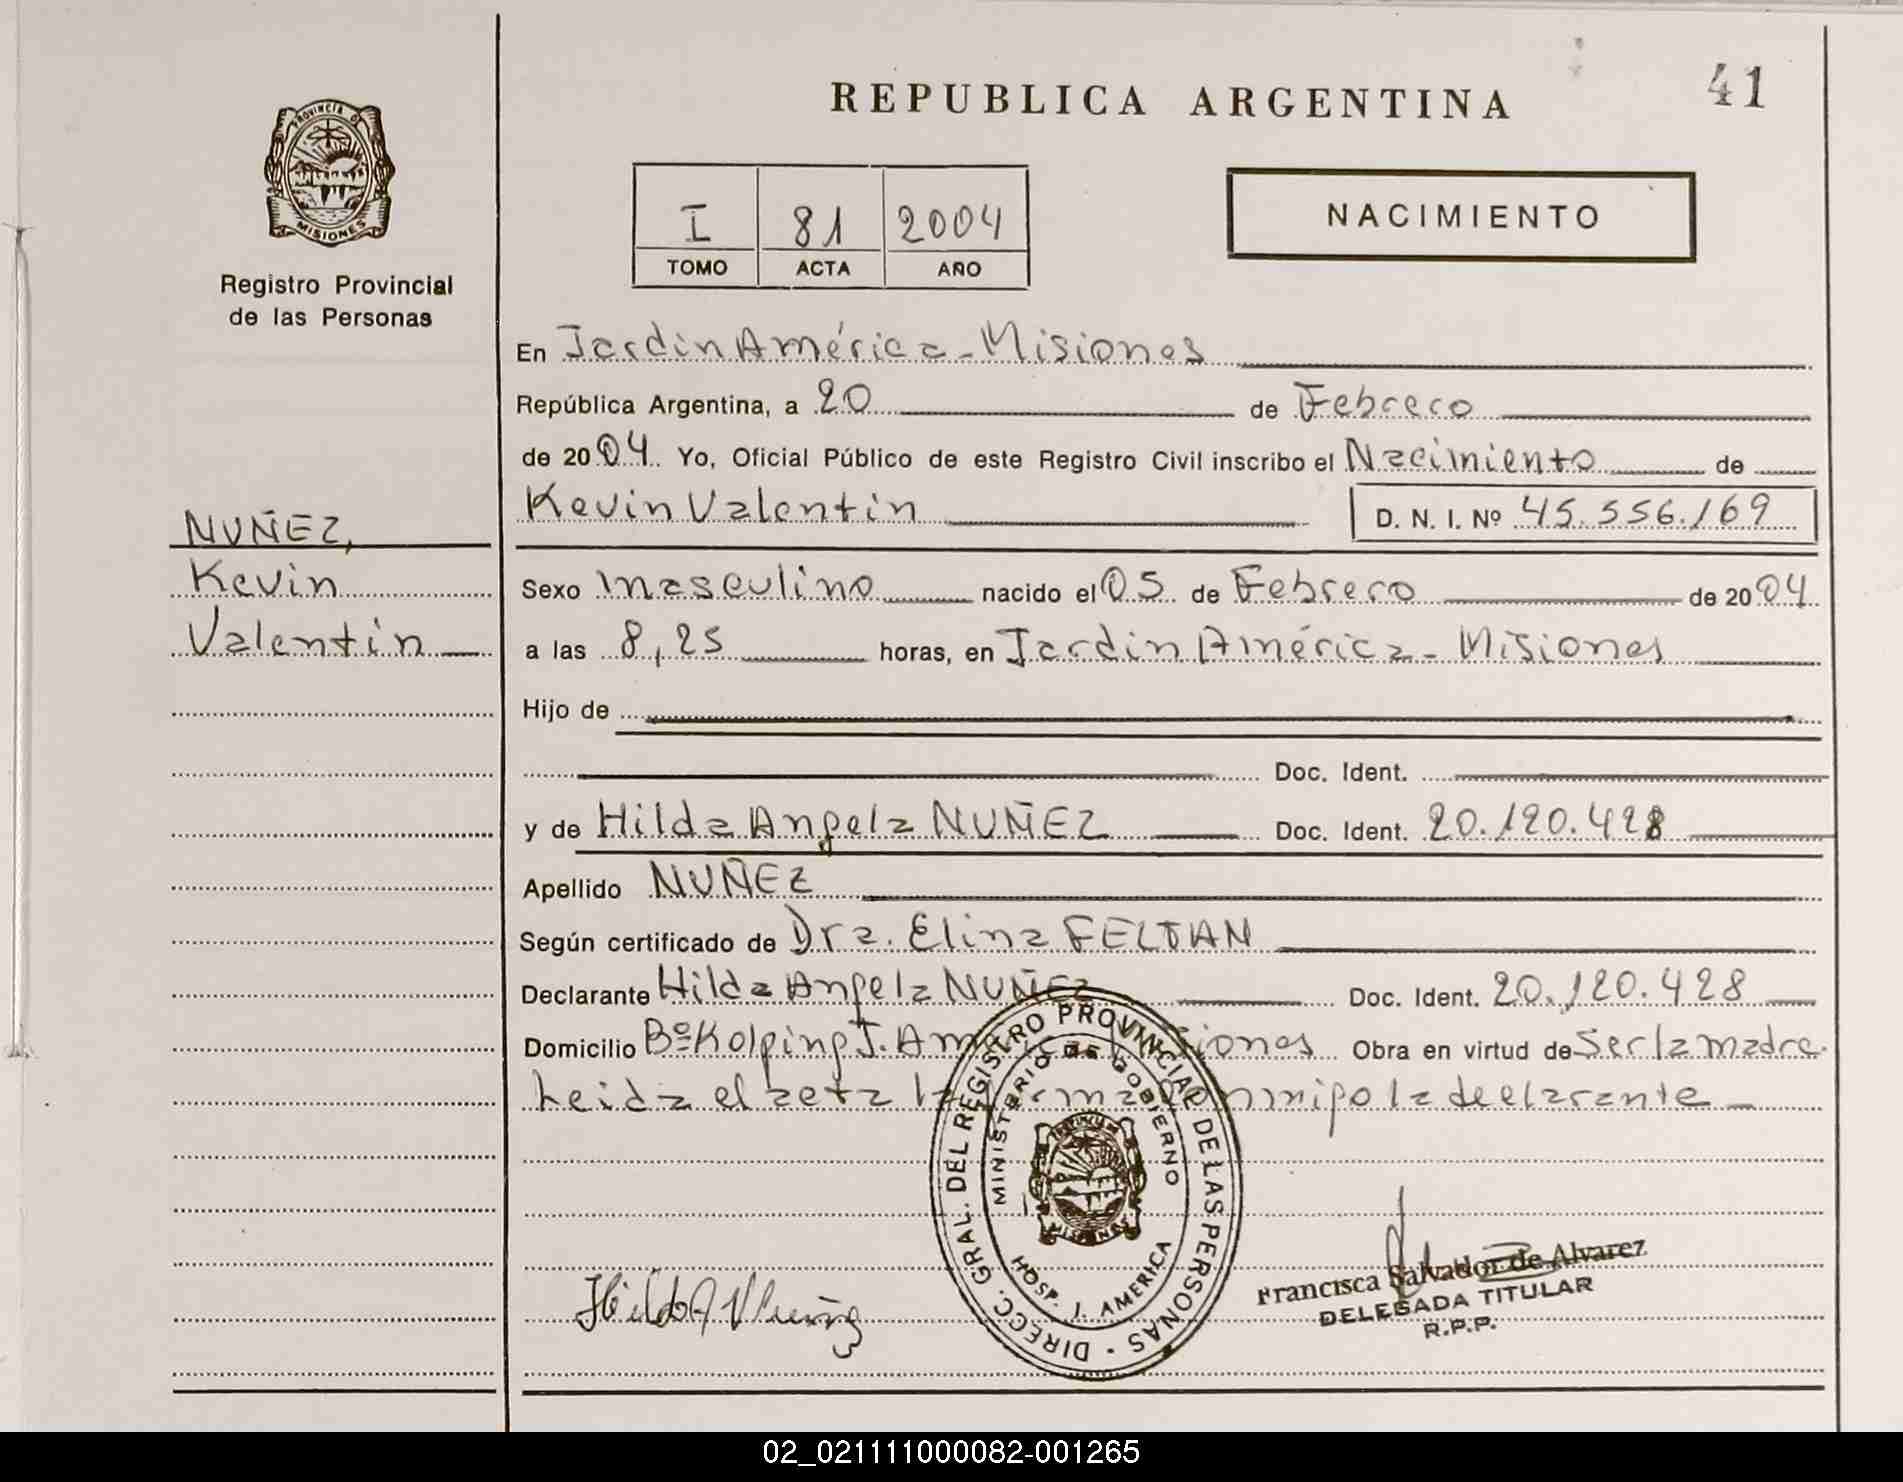 41
REPUBLICA ARGENTINA
PROVINCIA DE
MISIONES
Registro Provincial
de las Personas
I 81 2004
TOMO ACTA AÑO
NACIMIENTO
En Jardin América - Misiones
República Argentina, a 20 de Febrero
de 2004. Yo, Oficial Público de este Registro Civil inscribo el Nacimiento de
Kevin Valentin D. N. I. Nº 45.556.169
NUÑEZ,
Kevin
Valentin
Sexo masculino nacido el 05 de Febrero de 2004
a las 8,25 horas, en Jardin América - Misiones
Hijo de
Doc. Ident.
y de Hilda Angela NUÑEZ Doc. Ident. 20.120.428
Apellido NUÑEZ
Según certificado de Dra. Elina FELTAN
Declarante Hilda Angela NUÑEZ Doc. Ident. 20.120.428
Domicilio Bº Kolping J. América Misiones Obra en virtud de Ser la madre.
Leida el acta la firma conmigo la declarante -
DIRECC. GRAL. DEL REGISTRO PROVINCIAL DE LAS PERSONAS
MINISTERIO DE GOBIERNO
MISIONES
HOSP. J. AMERICA
Hilda A Nuñez
Francisca Salvador de Alvarez
DELEGADA TITULAR
R.P.P.
02_021111000082-001265